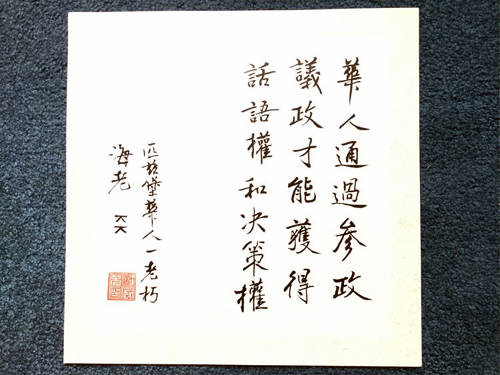 華人通過參政
議政才能獲得
話語權和决策權
匹茲堡華人一老朽
海老 KK